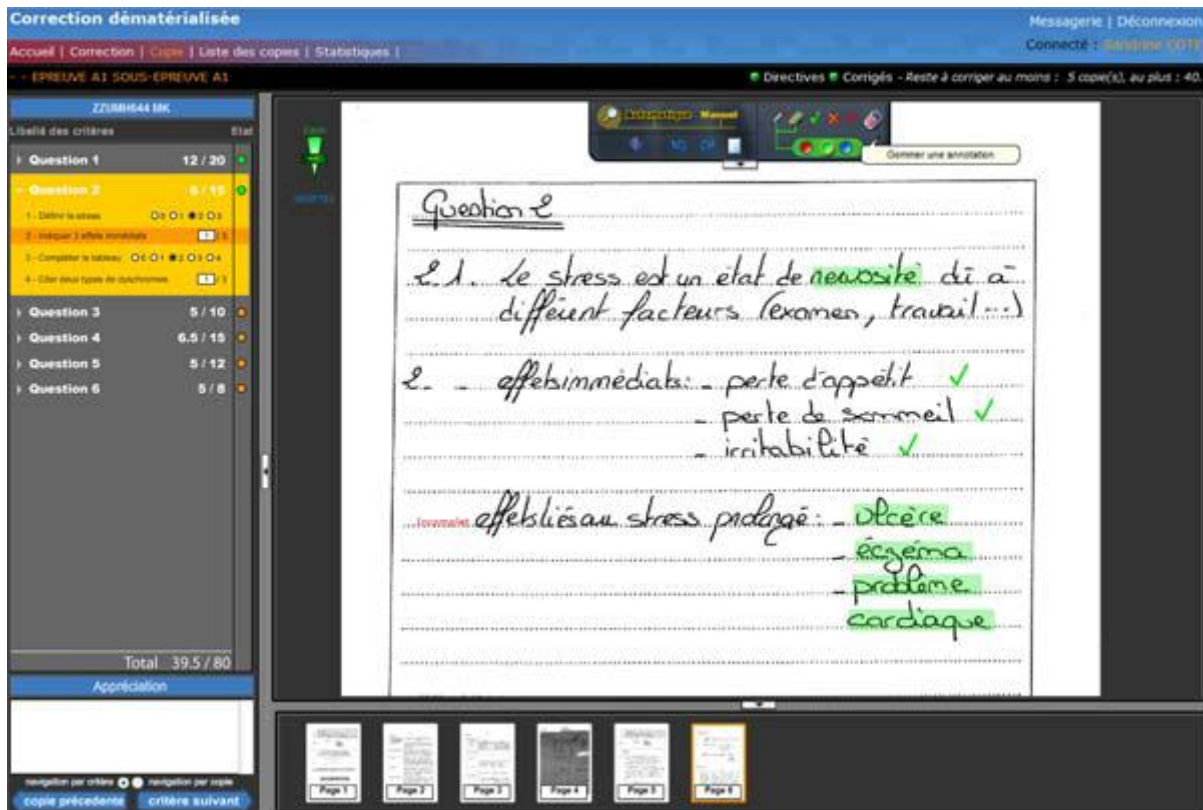 Correction dématérialisée
Messagerie | Déconnexion
Accueil | Correction | Copie | Liste des copies | Statistiques |
Connecté : Sandrine COTE
- - EPREUVE A1 SOUS-EPREUVE A1
Directives Corrigés - Reste à corriger au moins : 5 copie(s), au plus : 40.
ZZUMH644 MK
Libellé des critères Etat
Question 1 12 / 20
Question 2 6 / 15
1 - Définir le stress 0 1 2 3
2 - Indiquer 3 effets immédiats 1 / 3
3 - Compléter le tableau 0 1 2 3 4
4 - Citer deux types de 1 / 3
Question 3 5 / 10
Question 4 6.5 / 15
Question 5 5 / 12
Question 6 5 / 8
Total 39.5 / 80
Appréciation
navigation par critère navigation par copie
copie précédente critère suivant
Automatique Manuel
Gommer une annotation
Question 2
2.1. Le stress est un état de nervosité dû à
différent facteurs (examen, travail...)
2. - effets immédiats: - perte d'appétit
- perte de sommeil
- irritabilité
effets liés au stress prolongé: - ulcère
- éczéma
- problème
cardiaque
Page 1 Page 2 Page 3 Page 4 Page 5 Page 6